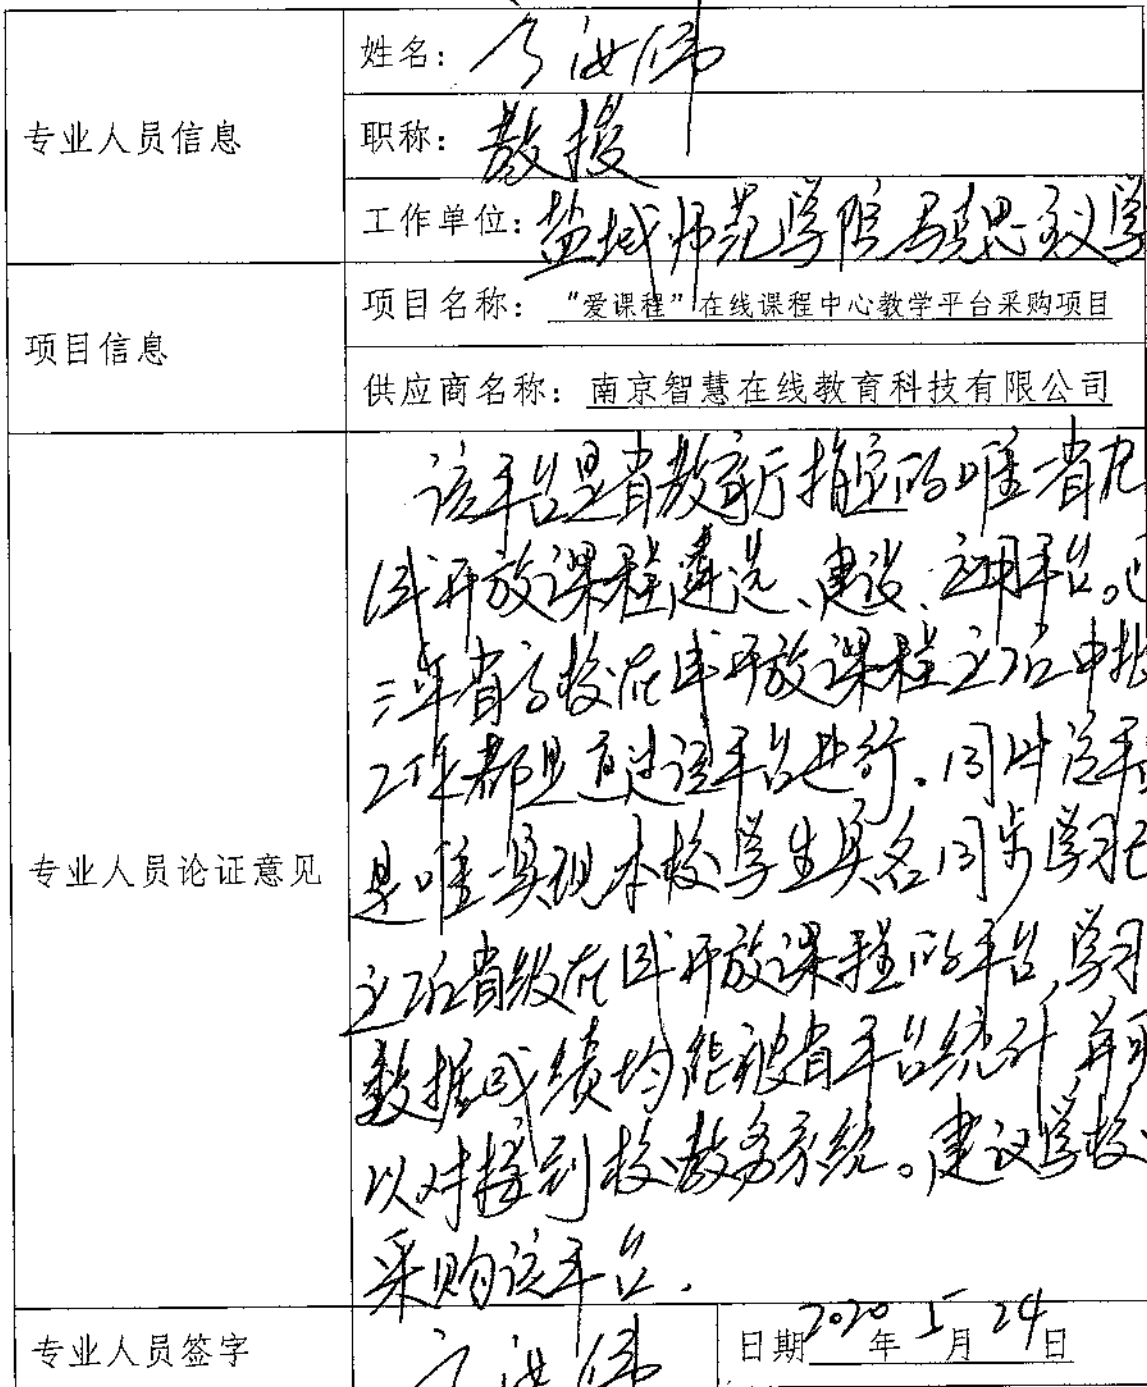 专业人员信息
姓名：
职称：教授
工作单位：盐城师范学院马克思主义学
项目信息
项目名称："爱课程"在线课程中心教学平台采购项目
供应商名称：南京智慧在线教育科技有限公司
专业人员论证意见
该平台是省教育厅指定的唯一省九
开放课程遴选、建设、应用平台。近
三年省高校在线开放课程立项申报
工作都是通过该平台进行。同时该平台
是唯一实现本校学生实名同步学习已
立项省级在线开放课程的平台，学习
数据成绩均能被省平台统计，并可
以对接到校教务系统。建议学校
采购该平台.
专业人员签字
日期2020年5月24日